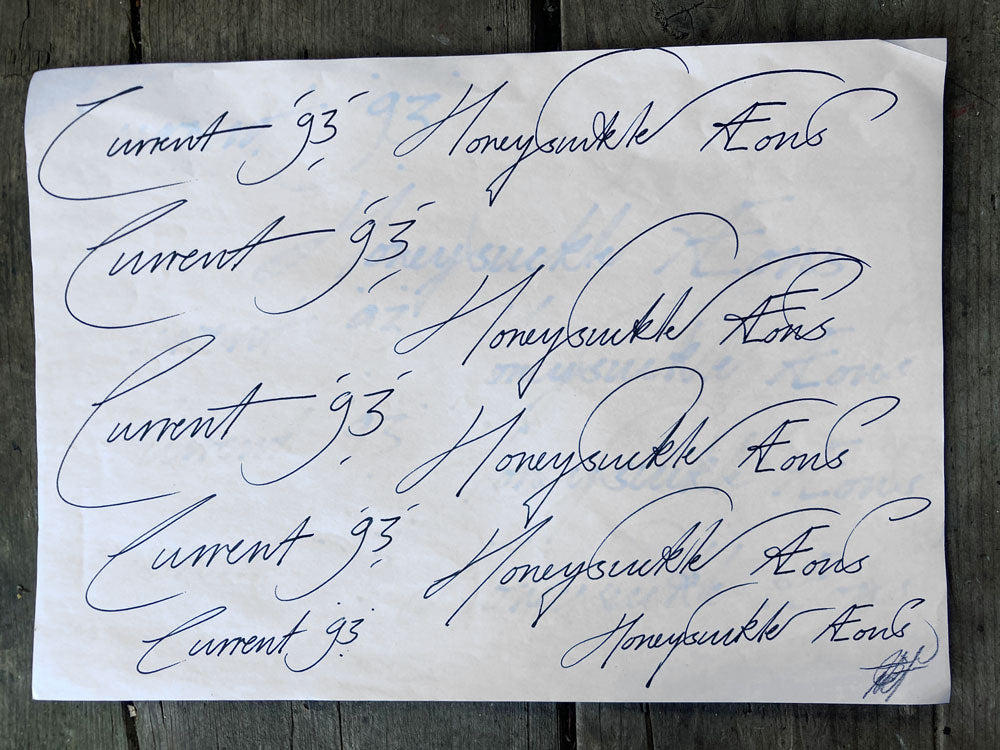 Current '93' Honeysuckle Æons
Current '93'
Honeysuckle Æons
Current '93' Honeysuckle Æons
Current '93' Honeysuckle Æons
Current '93' Honeysuckle Æons